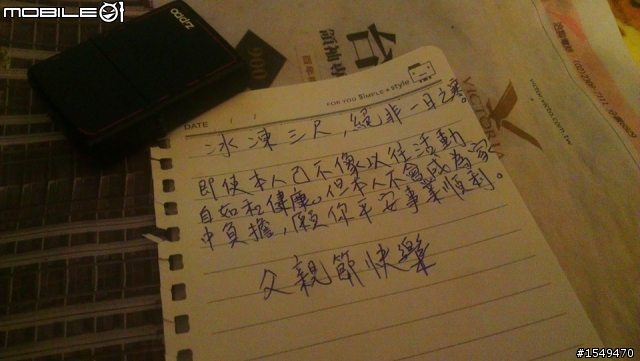 MOBILE01
zippo
FOR YOU SIMPLE & style
DATE / /
冰凍三尺，絕非一日之寒。
即使本人已不像以往活動
自如和健康。但本人不會成為家
中負擔，願你平安事業順利。
父親節快樂
VICTORIA
#1549470